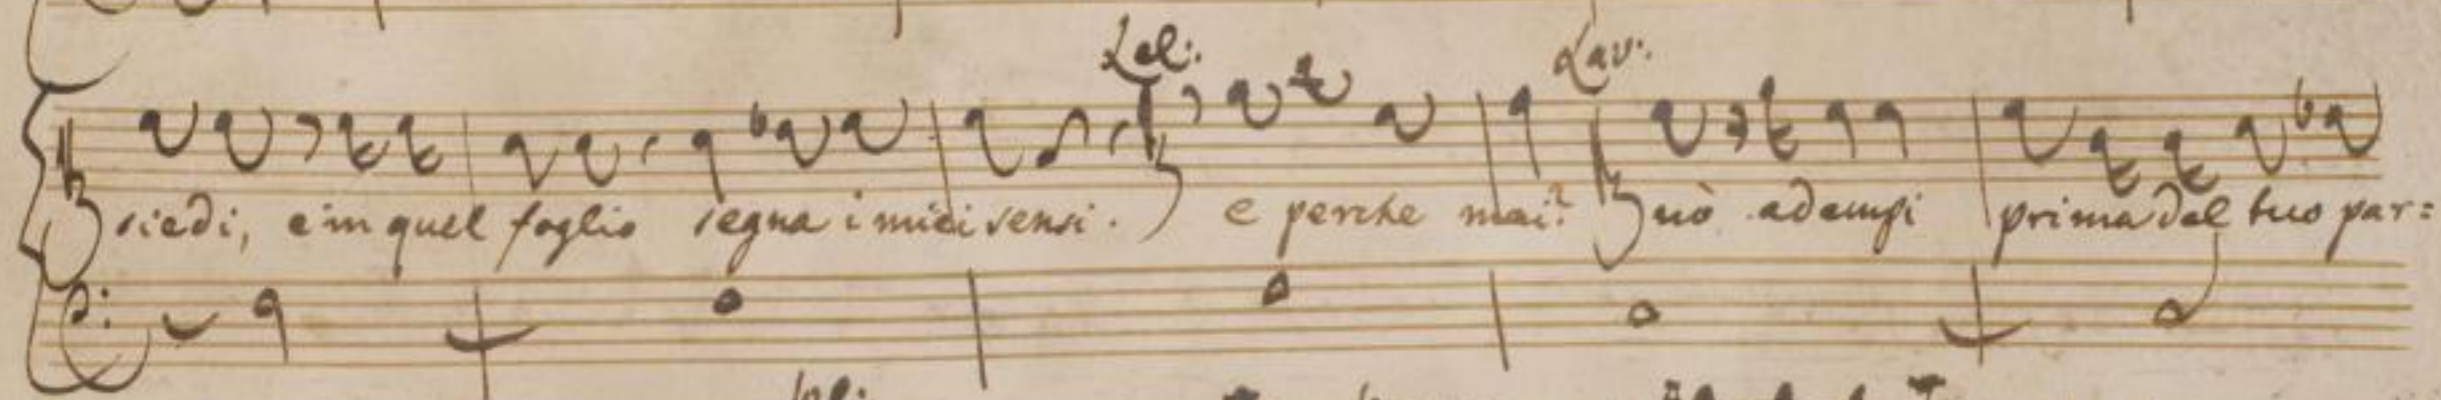 Lel: Lav:
siedi, e in quel foglio segna i miei sensi. e perche mai? nò adempi prima del tuo par=